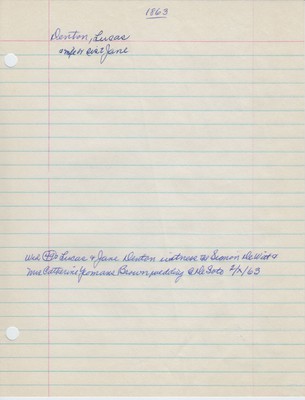 1863
Denton, Lucas
& Jane
Lucas & Jane Denton witness Simon DeWitt &
Mrs Catherine Yeomans Brown wedding @ DeSoto 2/2/63